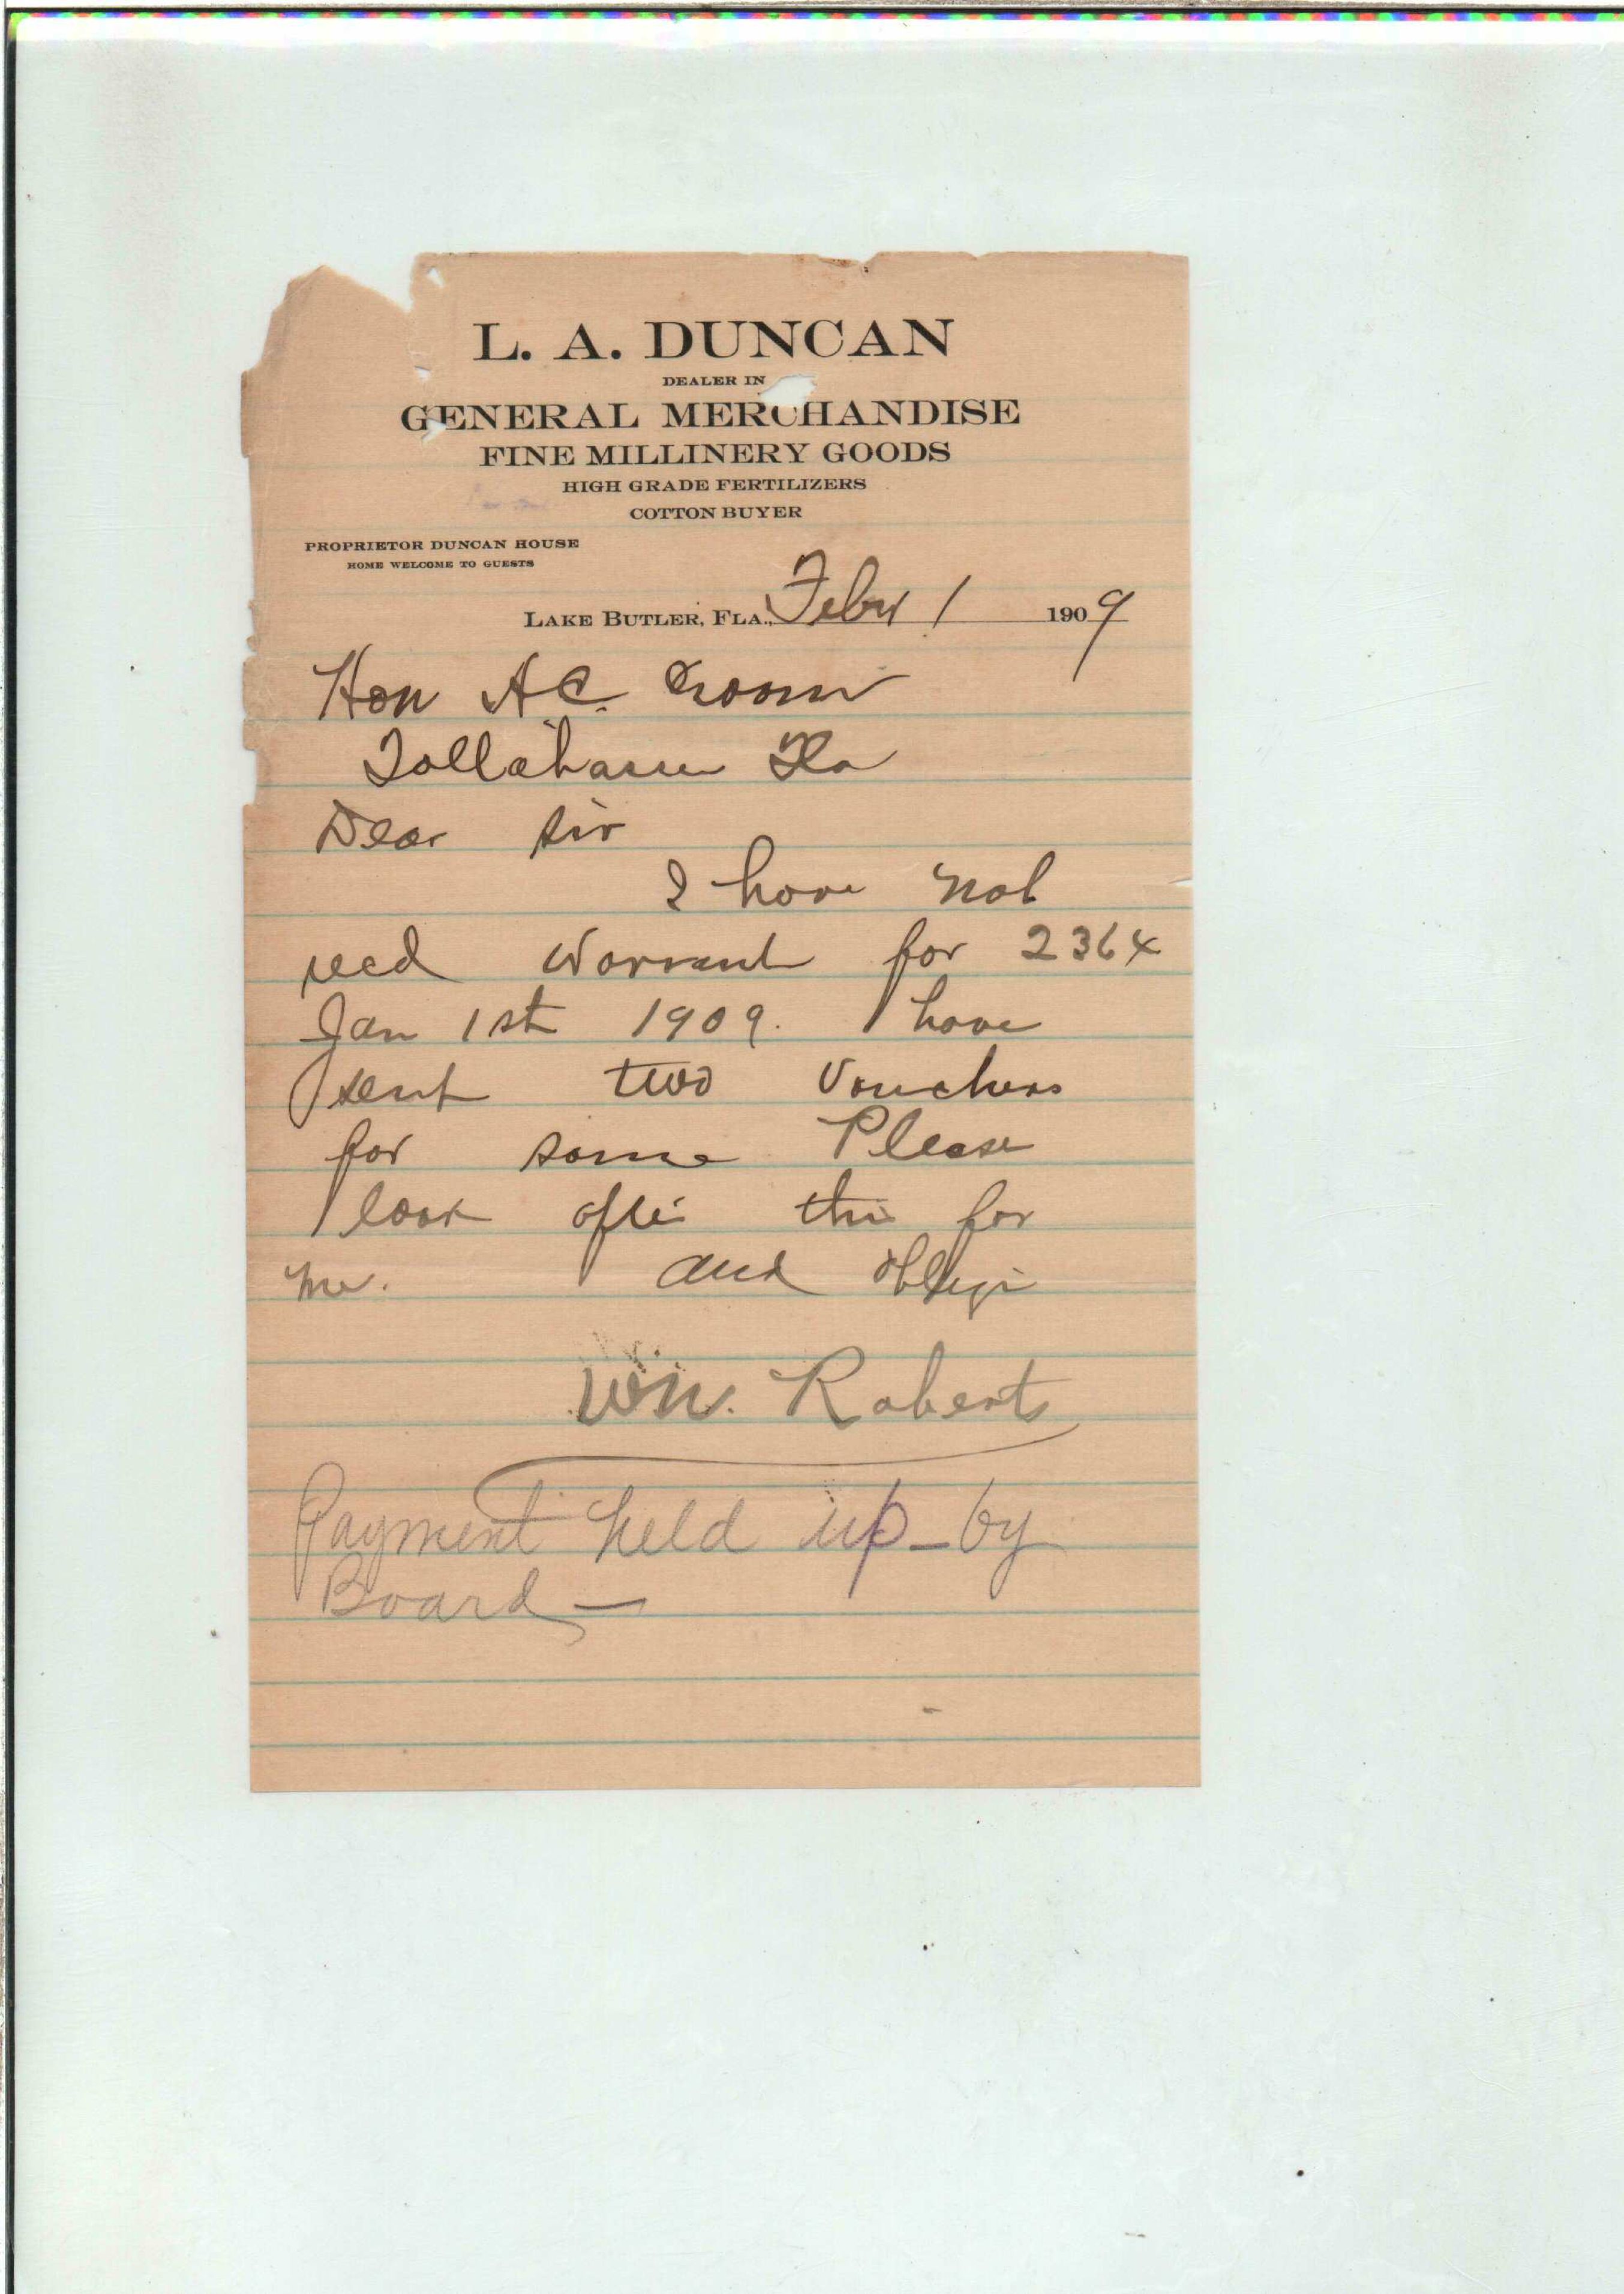 L. A. DUNCAN
DEALER IN
GENERAL MERCHANDISE
FINE MILLINERY GOODS
HIGH GRADE FERTILIZERS
COTTON BUYER
PROPRIETOR DUNCAN HOUSE
HOME WELCOME TO GUESTS
LAKE BUTLER, FLA., Febry 1 1909
Hon A C. Croom
Tallahassee Fla
Dear Sir
I have not
recd Warrant for 2364
Jan 1st 1909. I have
sent two Vouchers
for same Please
look after this for
me. and oblige
Wm. Roberts
Payment held up - by
Board -